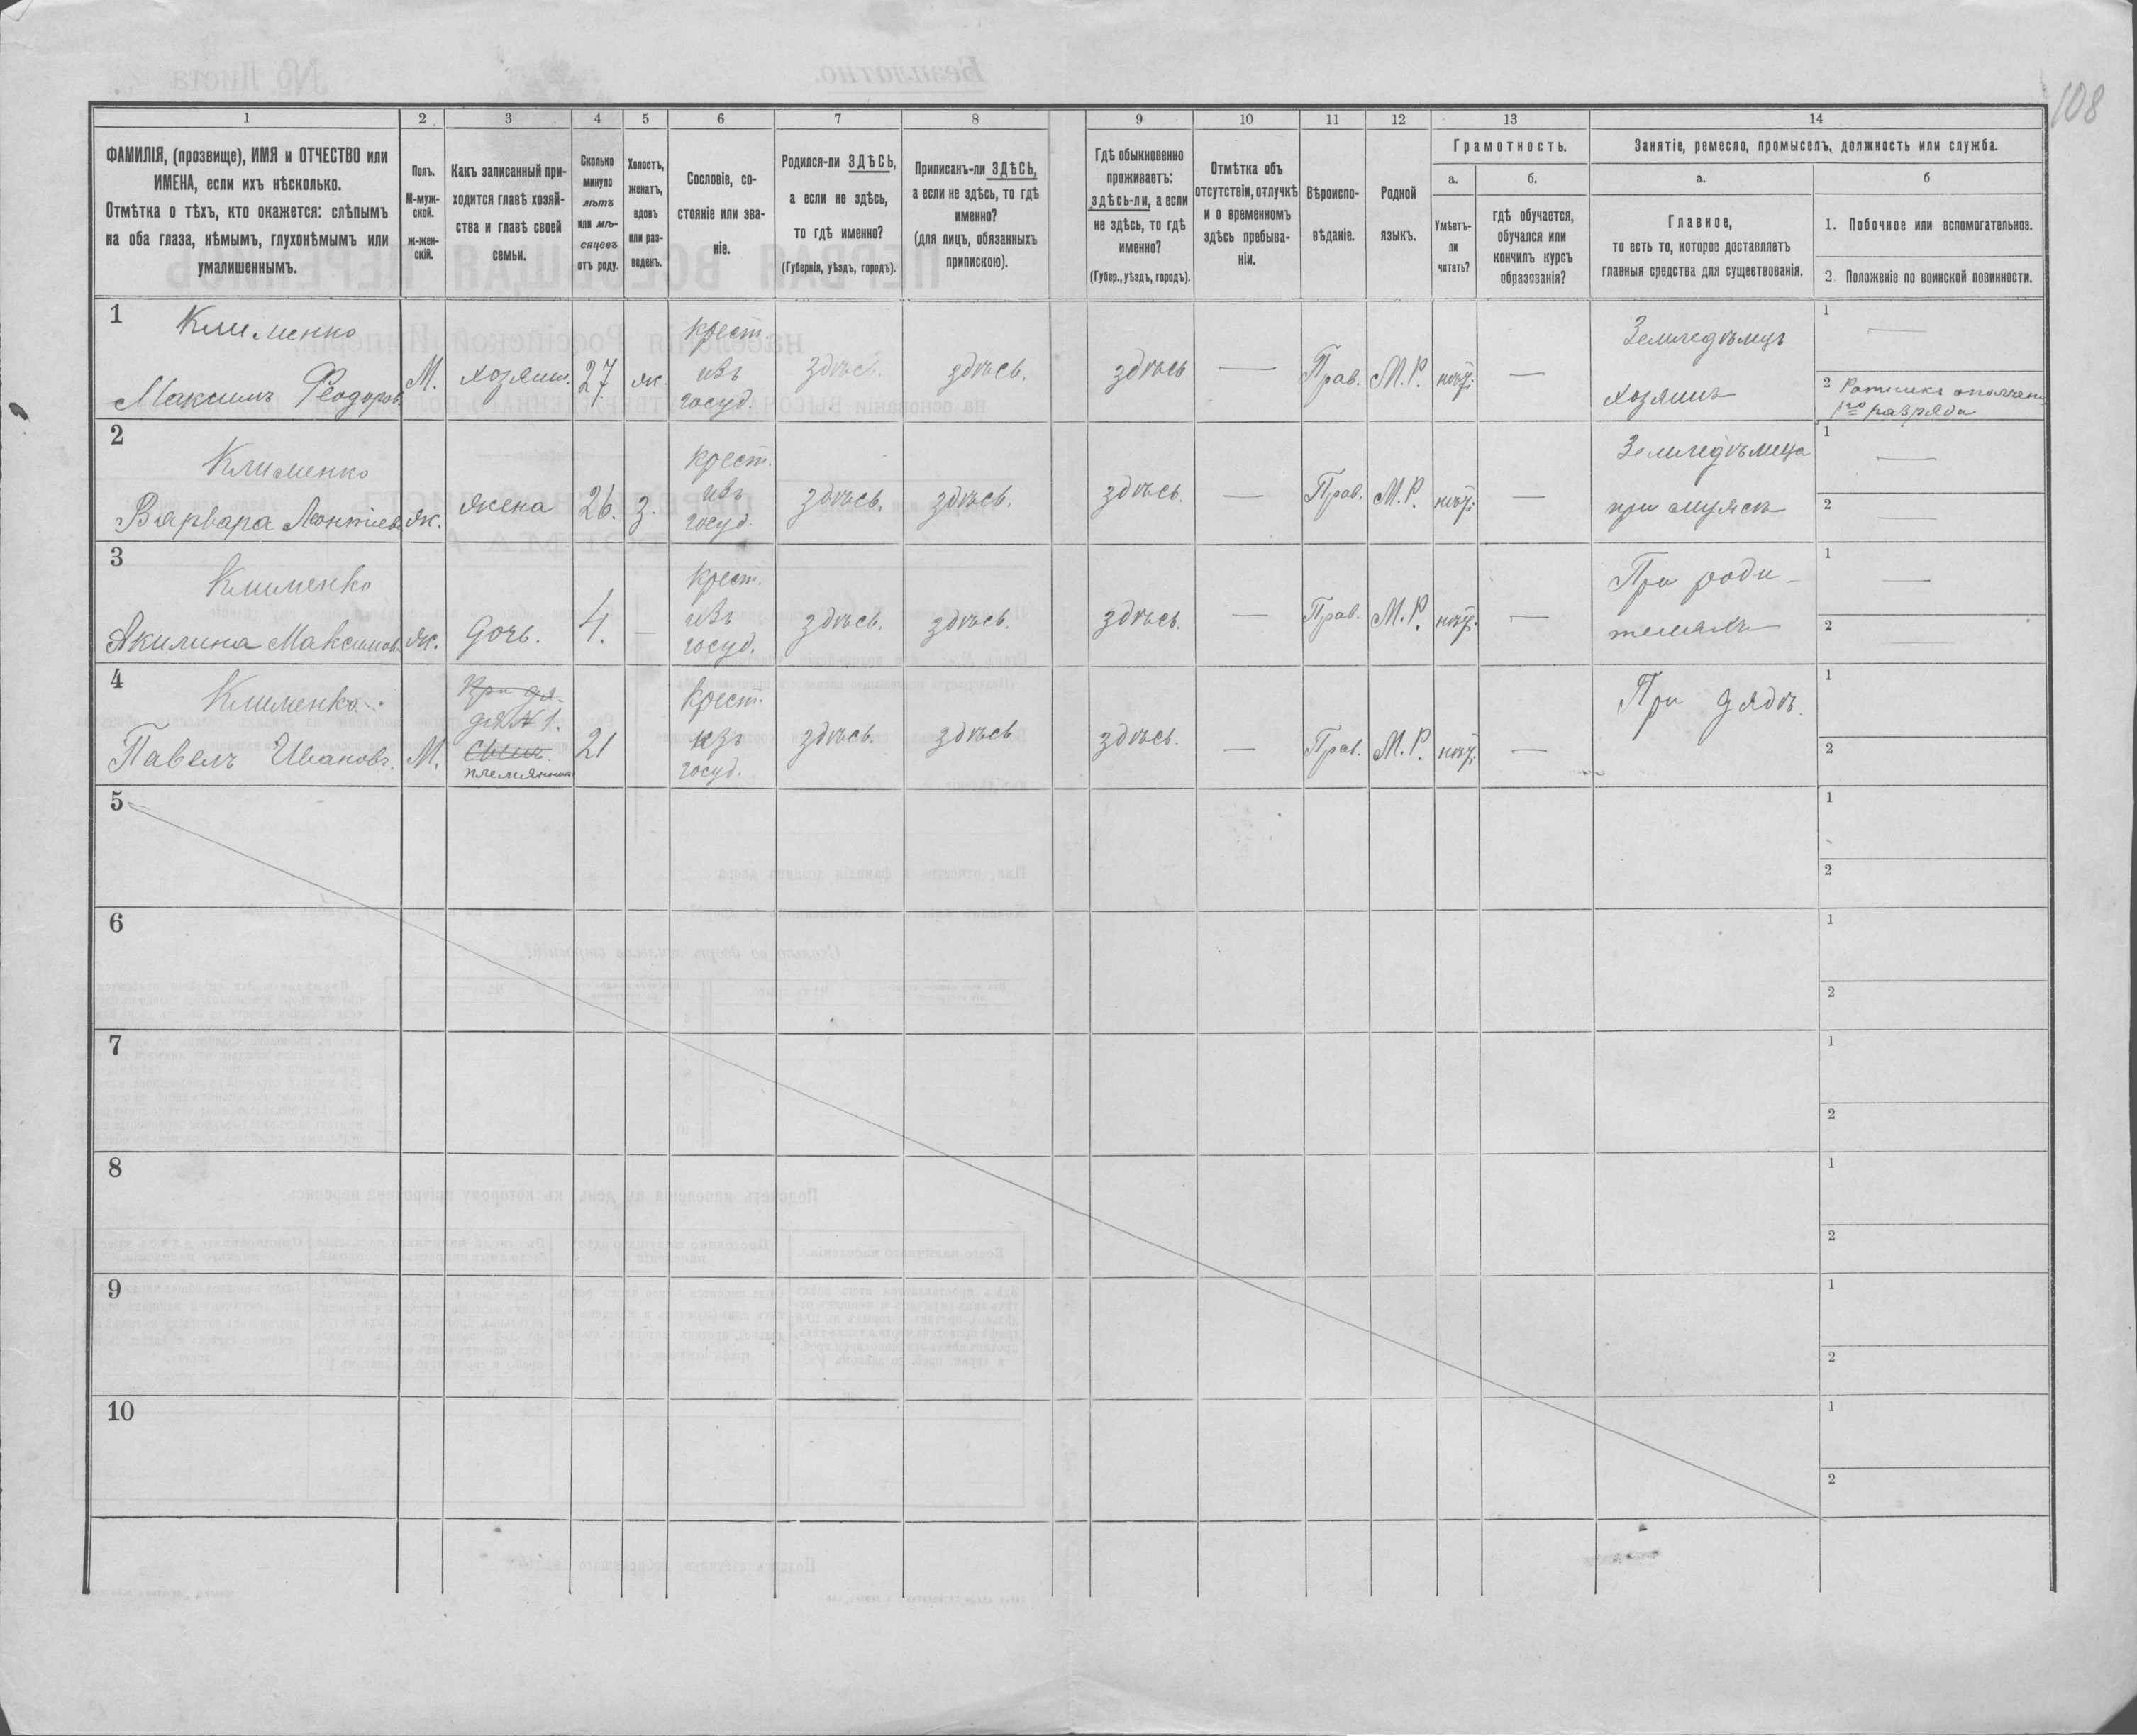 108
1
2
3
4
5
6
7
8
9
10
11
12
13
14
ФАМИЛІЯ, (прозвище), ИМЯ и ОТЧЕСТВО или
ИМЕНА, если ихъ нѣсколько.
Отмѣтка о тѣхъ, кто окажется: слѣпымъ
на оба глаза, нѣмымъ, глухонѣмымъ или
умалишеннымъ.
Полъ.
М-муж-
ской.
ж-жен-
скій.
Какъ записанный при-
ходится главѣ хозяй-
ства и главѣ своей
семьи.
Сколько
минуло
лѣтъ
или мѣ-
сяцевъ
отъ роду.
Холостъ,
женатъ,
вдовъ
или раз-
веденъ.
Сословіе, со-
стояніе или зва-
ніе.
Родился-ли ЗДѢСЬ,
а если не здѣсь,
то гдѣ именно?
(Губернія, уѣздъ, городъ).
Приписанъ-ли ЗДѢСЬ,
а если не здѣсь, то гдѣ
именно?
(для лицъ, обязанныхъ
припискою).
Гдѣ обыкновенно
проживаетъ:
здѣсь-ли, а если
не здѣсь, то гдѣ
именно?
(Губер., уѣздъ, городъ).
Отмѣтка объ
отсутствіи, отлучкѣ
и о временномъ
здѣсь пребыва-
ніи.
Вѣроиспо-
вѣданіе.
Родной
языкъ.
Грамотность.
а.
Умѣетъ-
ли
читать?
б.
гдѣ обучается,
обучался или
кончилъ курсъ
образованія?
Занятіе, ремесло, промыселъ, должность или служба.
а.
Главное,
то есть то, которое доставляетъ
главныя средства для существованія.
б
1. Побочное или вспомогательное.
2. Положеніе по воинской повинности.
1
Клименко
Максимъ Феодоров.
М.
хозяин.
27
ж.
крест.
изъ
госуд.
здѣсь.
здѣсь.
здѣсь
—
Прав.
М.Р.
нѣт.
—
Земледѣлецъ
хозяинъ
1
—
2 Ратникъ ополчен.
1го разряда
2
Клименко
Варвара Леонтіев.
ж.
жена
26.
з.
крест.
изъ
госуд.
здѣсь.
здѣсь.
здѣсь.
—
Прав.
М.Р.
нѣт.
—
Земледѣлица
при мужѣ
1
—
2
—
3
Клименко
Акилина Максимов.
ж.
дочь.
4.
—
Крест.
изъ
госуд.
здѣсь.
здѣсь.
здѣсь.
—
Прав.
М.Р.
нѣт.
—
При роди-
теляхъ
1
—
2
—
4
Клименко
Павелъ Ивановъ.
М.
При дя-
дя №1.
Сынъ.
племянник
21
Крест.
изъ
госуд.
здѣсь.
здѣсь
здѣсь.
—
Прав.
М.Р.
нѣт.
—
При дядѣ.
1
2
5
1
2
6
1
2
7
1
2
8
1
2
9
1
2
10
1
2